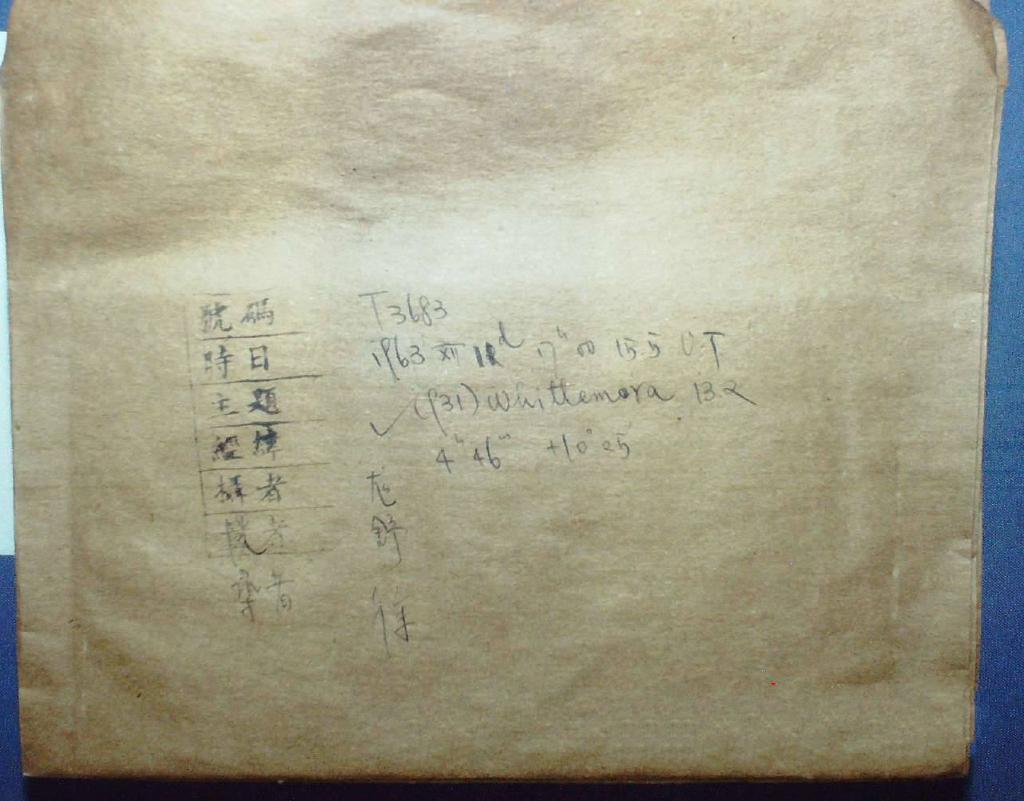 號碼 T3683
時日 1963 XII 17ʰ 00 15.5 UT
主題 ✓ (931) Whittemora 13.2
經緯 4ʰ46ᵐ +10°25
攝者
者 舒
者 徐